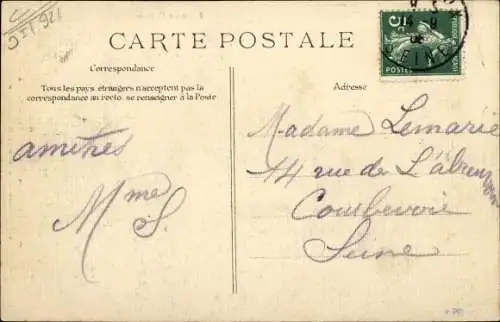 CARTE POSTALE
Correspondance
Tous les pays étrangers n'acceptent pas la
correspondance au recto. se renseigner à la Poste
Adresse
amitiés
Mme S.
Madame Lemarié
14 rue de L'abreuvoir
Courbevoie
Seine
5
POSTES
SEINE